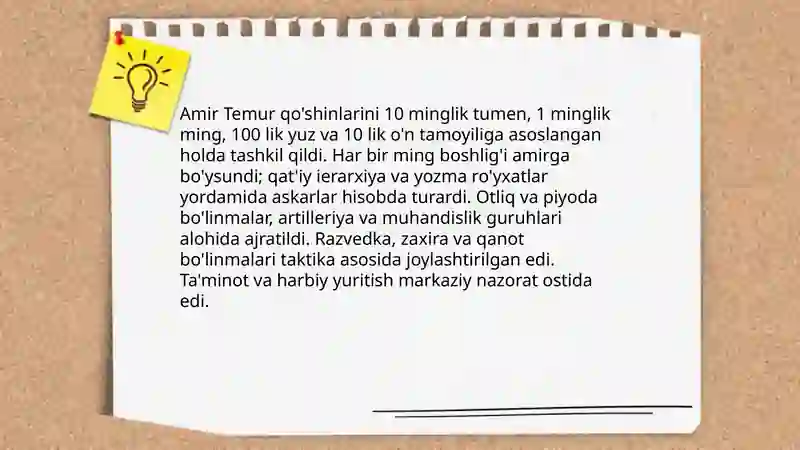 Amir Temur qo'shinlarini 10 minglik tumen, 1 minglik
ming, 100 lik yuz va 10 lik o'n tamoyiliga asoslangan
holda tashkil qildi. Har bir ming boshlig'i amirga
bo'ysundi; qat'iy ierarxiya va yozma ro'yxatlar
yordamida askarlar hisobda turardi. Otliq va piyoda
bo'linmalar, artilleriya va muhandislik guruhlari
alohida ajratildi. Razvedka, zaxira va qanot
bo'linmalari taktika asosida joylashtirilgan edi.
Ta'minot va harbiy yuritish markaziy nazorat ostida
edi.